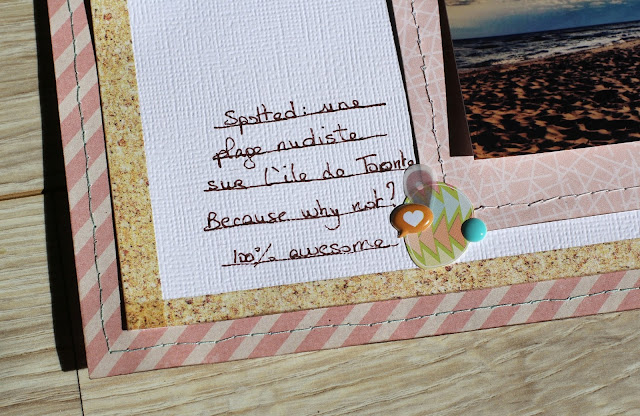 Spotted: une
plage nudiste
sur l'île de Toronto
Because why not?
100% awesome.